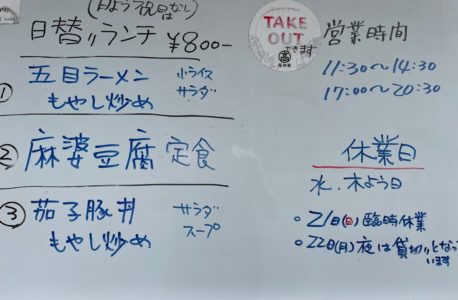 (日よう祝日はなし)
日替りランチ ¥800-
① 五目ラーメン 小ライス
もやし炒め サラダ
② 麻婆豆腐 定食
③ 茄子豚丼 サラダ
もやし炒め スープ
TAKE
OUT
できます
営業時間
11:30〜14:30
17:00〜20:30
休業日
水、木よう日
。21日(日)臨時休業
。22日(月)夜は貸切りとなって
います